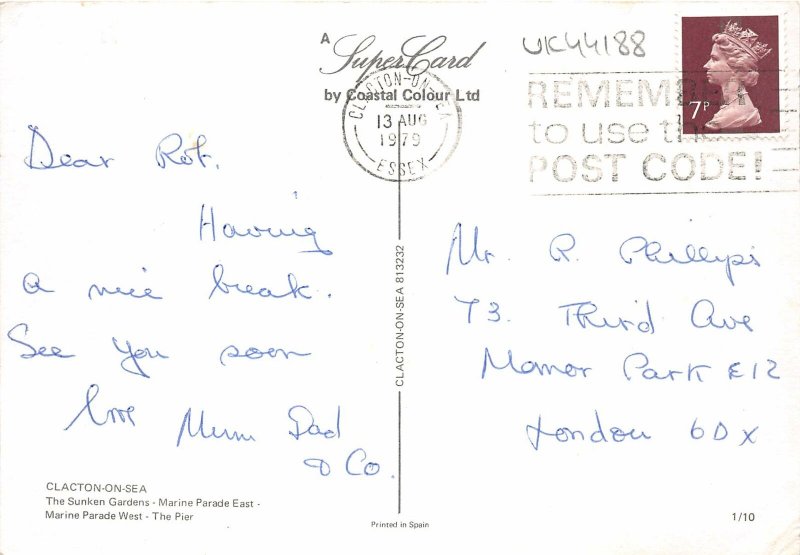 A
SuperCard
by Coastal Colour Ltd
UK44188
CLACTON-ON-SEA
13 AUG
1979
ESSEX
REMEMBER
to use the
POST CODE!
7P
Dear Rob.
Having
a nice break.
See you soon
love Mum Dad
& Co.
CLACTON-ON-SEA 813232
Mr. R. Phillips
73. Third Ave
Manor Park E12
London 6DX
CLACTON-ON-SEA
The Sunken Gardens - Marine Parade East -
Marine Parade West - The Pier
Printed in Spain
1/10